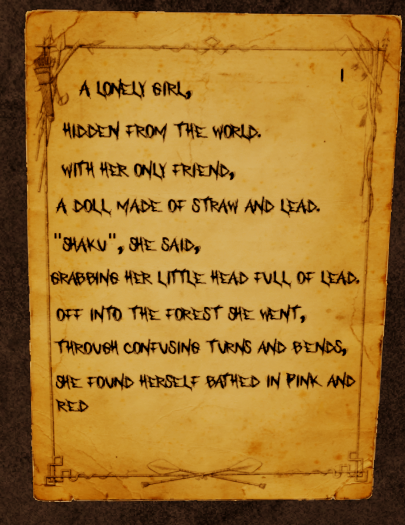 1
A LONELY GIRL,
HIDDEN FROM THE WORLD.
WITH HER ONLY FRIEND,
A DOLL MADE OF STRAW AND LEAD.
"SHAKU", SHE SAID,
GRABBING HER LITTLE HEAD FULL OF LEAD.
OFF INTO THE FOREST SHE WENT,
THROUGH CONFUSING TURNS AND BENDS,
SHE FOUND HERSELF BATHED IN PINK AND
RED